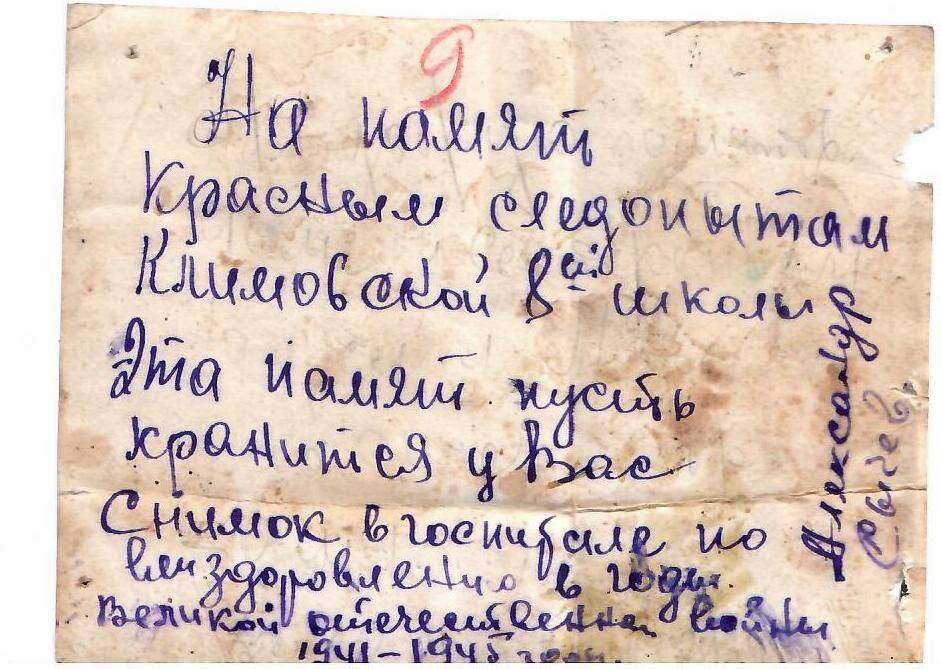 9
На памят
Красным следопытам
Климовской 8ой школы
Эта памят пусть
хранится у Вас
Снимок в госпитале по
выздоровлению в годы
Великой отечественной войны
1941-1945 годы.
Александр
Сычев